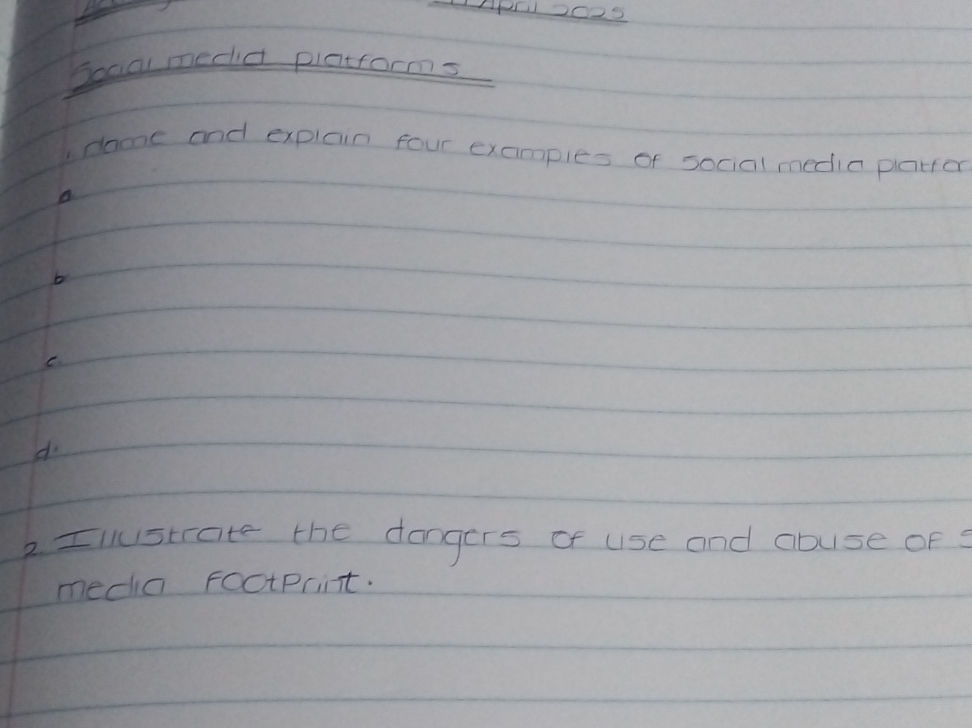 April 2025
Social media platforms
1. Name and explain four examples of social media platfor
a
b
c.
d.
2. Illustrate the dangers of use and abuse of s
media footprint.